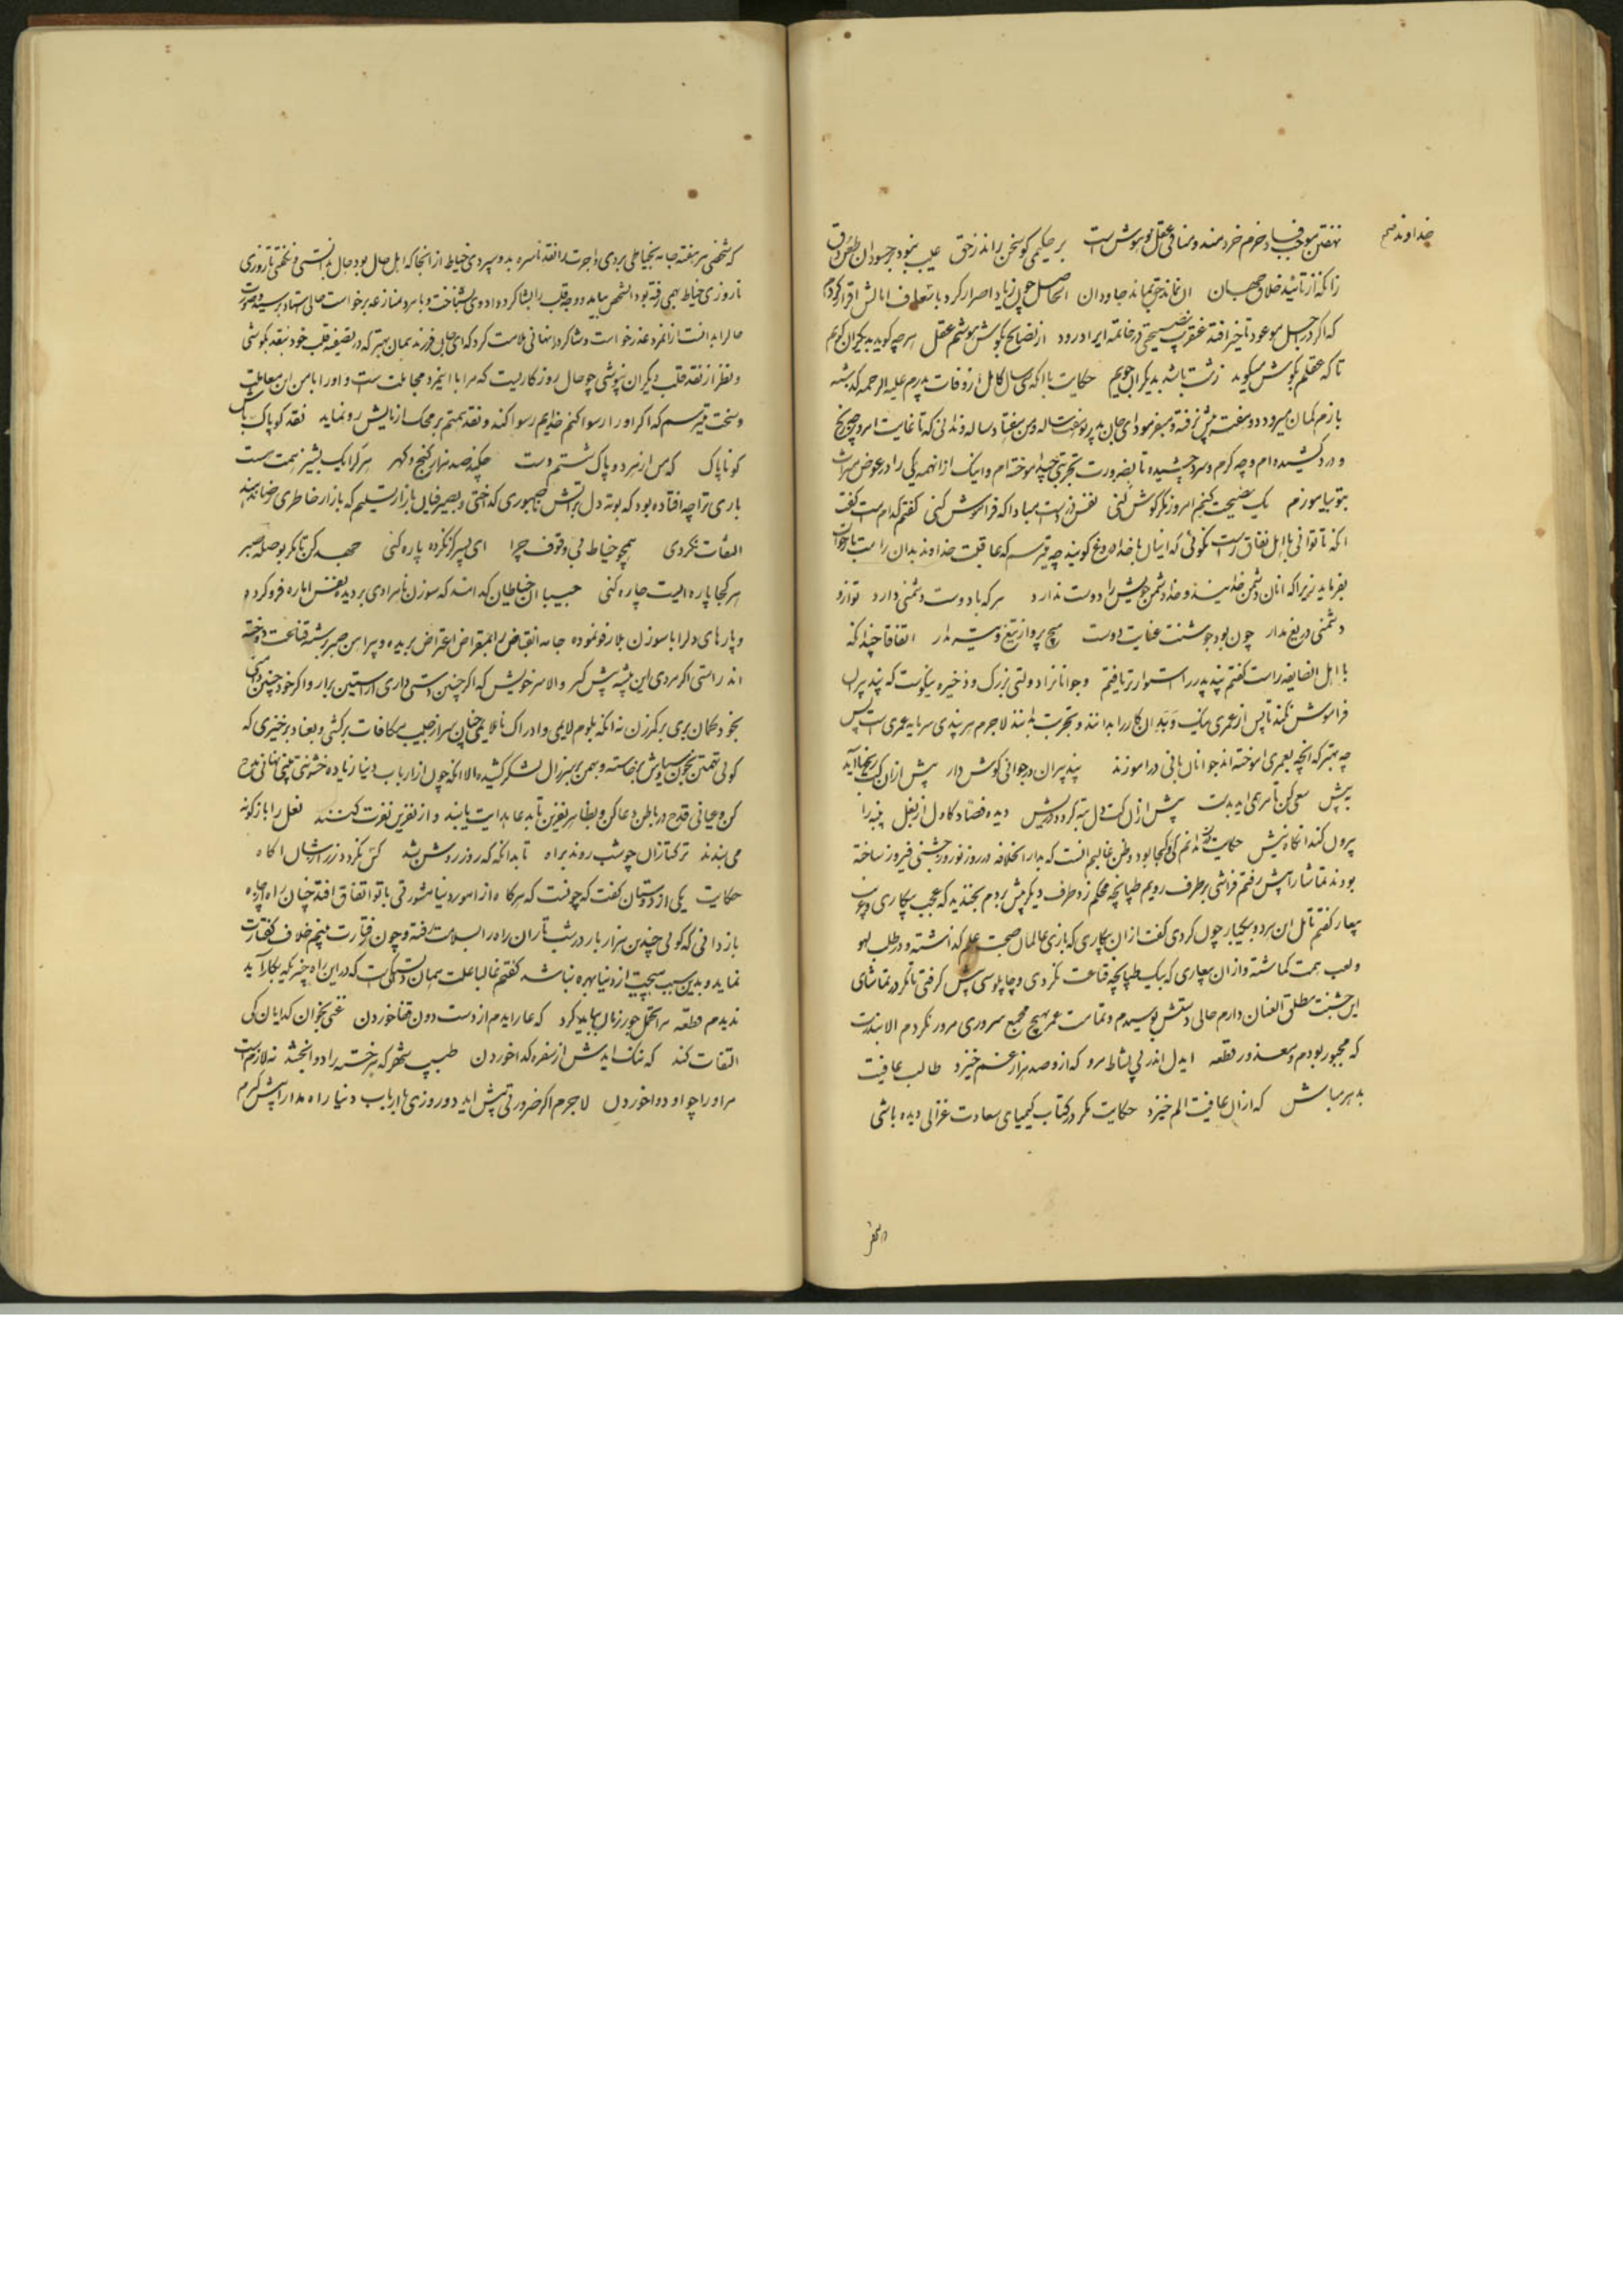 خداوندیم
نهفتن موجب فساد خرم خردمند و منافی عقل و هوش است بر حکیمی کو سخن راند ز حق عیب نبود بر حسودان طعن و دق
زانکه از تائید خلاق جهان آن نماند خود بماند جاودان الحاصل چون زیاد اصرار کرد با تعارف امالش اقرار کردم
که اگر در اجل موعود تاخیر افتد عنقریب نصیحتی در خاتمه ایراد رود از نصایح بگوش هوشم عقل هر چه گوید بدیگران گویم
تا که عقلم بگوش میگوید زشت باشد بدیگران جویم حکایت با آنکه سی سال کامل از وفات پدرم علیه الرحمه گذشته
بازم گمان میرود دو هفت بیش نرفته و میفرمود ای جان پدر تو هفت ساله و من هفتاد ساله و ندانی که تا غایت امر و چه رنج
و درد کشیده ام و چه گرم و سرد چشیده تا بضرورت تجربتی چند آموخته ام و اینک از انهمه یکی را در عوض میراث
بتو بیاموزم یک نصیحت کنیم امروز گر گوش کنی نقش زر است مبادا که فراموش کنی گفتم کدام است گفت
آنکه تا توانی با اهل نفاق راست نگوئی که اینان با خدا دروغ گویند چه میترسم که عاقبت خداوند بدان راست باز خواست
بفرماید زیرا که آنان دشمن خدایند و خدا دشمن خویش را دوست ندارد هر که با دوست دشمنی دارد تو ازو
دشمنی دریغ مدار چون بود جوشنت عنایت دوست هیچ پروا ز تیغ و تیشه مدار اتفاقا چندانکه
با اهل انصاف راست گفتم پند پدر را استوارتر یافتم و جوانانرا دولتی بزرگ و ذخیره نیکوست که پند پیران
فراموش نکنند تا پس از عمری نیک و بد آن کار را بدانند و تجربت یابند لاجرم هر پندی سرمایه عمری است پس
چه بهتر که آنچه بعمری آموخته اند جوانان بآنی درآموزند پند پیران در جوانی گوش دار پیش از آن کت رنجها آید
به پیش سعی کن تا مرهمی آید بدست پیش از آن کت دل تبه گردد ز ریش دیده فصاد کاول از بغل پنبه را
بیرون کند آنگاه نیش حکایت درست ندانم کی و کجا بود و ظن غالبم آنست که بدار الخلافه در روز نوروز جشنی فیروز ساخته
بودند تماشا را پیش رفتم فراشی بر طرف رویم طپانچه محکم زد طرف دیگر پیش بردم بخندید که عجب بیکاری و غریب
بیعار گفتم تامل این مرد و بیکبار چون کردی گفت از آن بیکاری که بازی عالمان صحبت علم گذاشته و در طلب لهو
و لعب همت گماشته و از آن بیعاری که بیک طپانچه قناعت نکردی و چاپلوسی پیش گرفتی تا مگر در تماشای
این جشنت مطلق العنان دارم حالی دستش بوسیدم و تمامت عمر بهیچ مجمع سروری مرور نکردم الا بندرت
که مجبور بودم و معذور قطعه ایدل اندر پی نشاط مرو که ازو صد هزار غم خیزد طالب عافیت
بدهر مباش که از آن عافیت الم خیزد حکایت مگر در کتاب کیمیای سعادت غزالی دیده باشی
که شخصی هر هفته جامه بخیاطی بردی و اجرت را نقد ناسره بدو سپردی خیاط از آنجا که اهل حال بود حال بدانستی و نگفتی تا روزی
تا روزی خیاط بمهمی رفته بود آن شخص بیامد و وجه قلب را بشاگرد داد وی بشناخت و با مرد منازعه برخواست حالی استاد برسید و صورت
حال را بدانست از آنمرد عذر خواست و شاگرد را نهانی ملامت کرد که ای جان فرزند همان بهتر که در تصفیه قلب خود بنقد بکوشی
و نظر از نقد قلب دیگران بپوشی چو حال روزگاریست که مرا با اینمرد مجاملت است و او را با من این معاملت
و سخت میترسم که اگر او را رسوا کنم خدایم رسوا کند و نقد همتم بر محک آزمایش رو نماید نقد گو پاک باش
گو ناپاک که من از هر دو پاک شستم دست چکند صد هزار گنج و گهر هر کرا یک پشیز همت هست
باری ترا چه افتاده بود که بوته دل بر آتش صبوری گداختی و بصیر فیان بازار تسلیم که بازار خاطری رضا ندهند
التفات نکردی همچو خیاط بی وقوف چرا ای پسر گز نکرده پاره کنی جهد کن تا مگر بوصله صبر
هر کجا پاره ایست چاره کنی حبیب آن خیاطان که اند که سوزن نامرادی بر دیده نفس اماره فرو کرده
و پارهای دل را با سوزن بلا رفو نموده جامه انقباض را بمقراض اعتراض بریده و پیراهن صبر برشته قناعت دوخته
اند راستی اگر مردی این پیشه پیش گیر والا سر خویش که اگر چنین دستی داری از آستین برار و اگر خود چنین مردی
بخود گمان بری بر گمرزن نه آنکه بلوم لایمی و ادراک ناملایمی چنان سر از جیب مکافات برکشی و بعناد برخیزی که
گوئی تهمتن بخون سیاوش برخاسته و بهمن بر سر زال لشکر کشیده الا آنکه چون از ارباب دنیا زیاده خشونتی بینی نهانی مدح
کن و عیانی قدح در باطن دعا کن و بظاهر نفرین تا بدعا هدایت یابند و از نفرین نفرت کنند نعل را باژگونه
می بندند ترکتازان چو شب روند براه تا بدانگه که روز روشن شد کس نگردد ز رازشان آگاه
حکایت یکی از دوستان گفت که چونست که هر گاه از امور دنیا مشورتی با تو اتفاق افتد چنان راه و چاره
باز دانی که گوئی چندین هزار بار در شب تار آن راه را بسلامت رفته و چون رفتارت بینم خلاف گفتارت
نماید و بدین سبب هیچت از دنیا بهره نباشد گفتم غالبا علت همان دلتنگیست که در این راه چیزیکه بکار آید
ندیدم قطعه مرا تحمل جور زمان بباید کرد که عار آیدم از دست دون قفا خوردن غنی بخوان گدایان کی
التفات کند که ننگ آیدش از سفره گدا خوردن طبیب شهر که هر خسته را دوا بخشد نه لازمست
مر او را چو او دوا خوردن لاجرم اگر ضرورتی پیش آید دو روزی با ارباب دنیا راه مدارا پیش گیرم